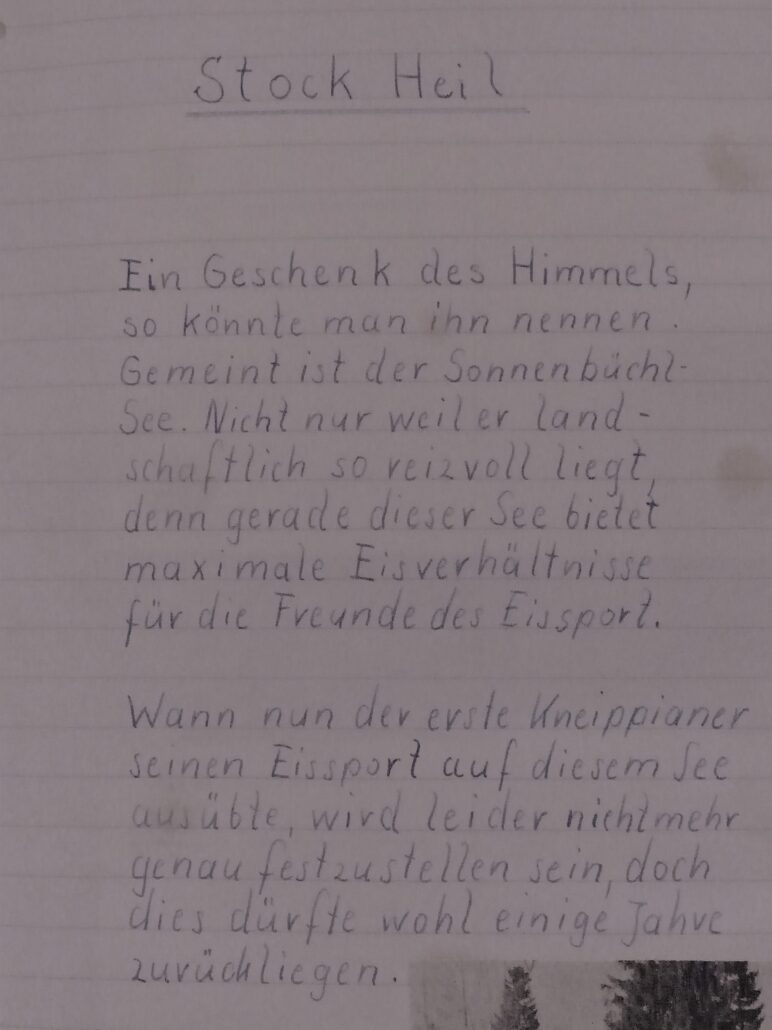 Stock Heil
Ein Geschenk des Himmels,
so könnte man ihn nennen.
Gemeint ist der Sonnenbüchl-
See. Nicht nur weil er land-
schaftlich so reizvoll liegt,
denn gerade dieser See bietet
maximale Eisverhältnisse
für die Freunde des Eissport.
Wann nun der erste Kneippianer
seinen Eissport auf diesem See
ausübte, wird leider nicht mehr
genau festzustellen sein, doch
dies dürfte wohl einige Jahre
zurückliegen.